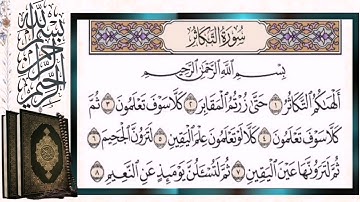 سُورَةُ التَّكَاثُرِ
بِسْمِ اللَّهِ الرَّحْمَٰنِ الرَّحِيمِ
أَلْهَىٰكُمُ التَّكَاثُرُ ١ حَتَّىٰ زُرْتُمُ الْمَقَابِرَ ٢ كَلَّا سَوْفَ تَعْلَمُونَ ٣ ثُمَّ
كَلَّا سَوْفَ تَعْلَمُونَ ٤ كَلَّا لَوْ تَعْلَمُونَ عِلْمَ الْيَقِينِ ٥ لَتَرَوُنَّ الْجَحِيمَ ٦
ثُمَّ لَتَرَوُنَّهَا عَيْنَ الْيَقِينِ ٧ ثُمَّ لَتُسْـَٔلُنَّ يَوْمَئِذٍ عَنِ النَّعِيمِ ٨
بسم الله الرحمن الرحيم